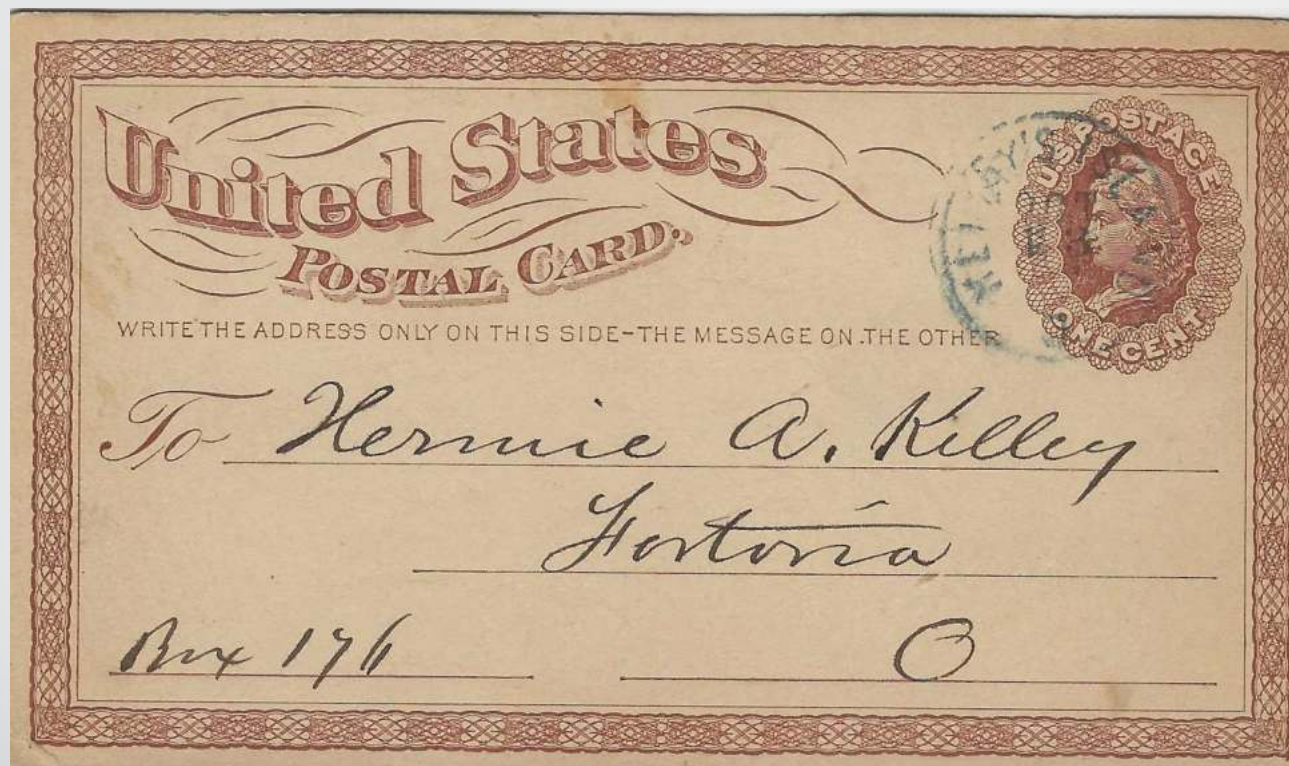 United States
POSTAL CARD.
U S POSTAGE
ONE CENT
WRITE THE ADDRESS ONLY ON THIS SIDE-THE MESSAGE ON THE OTHER
To Hermie A. Kelley
Fostoria
Box 176 O